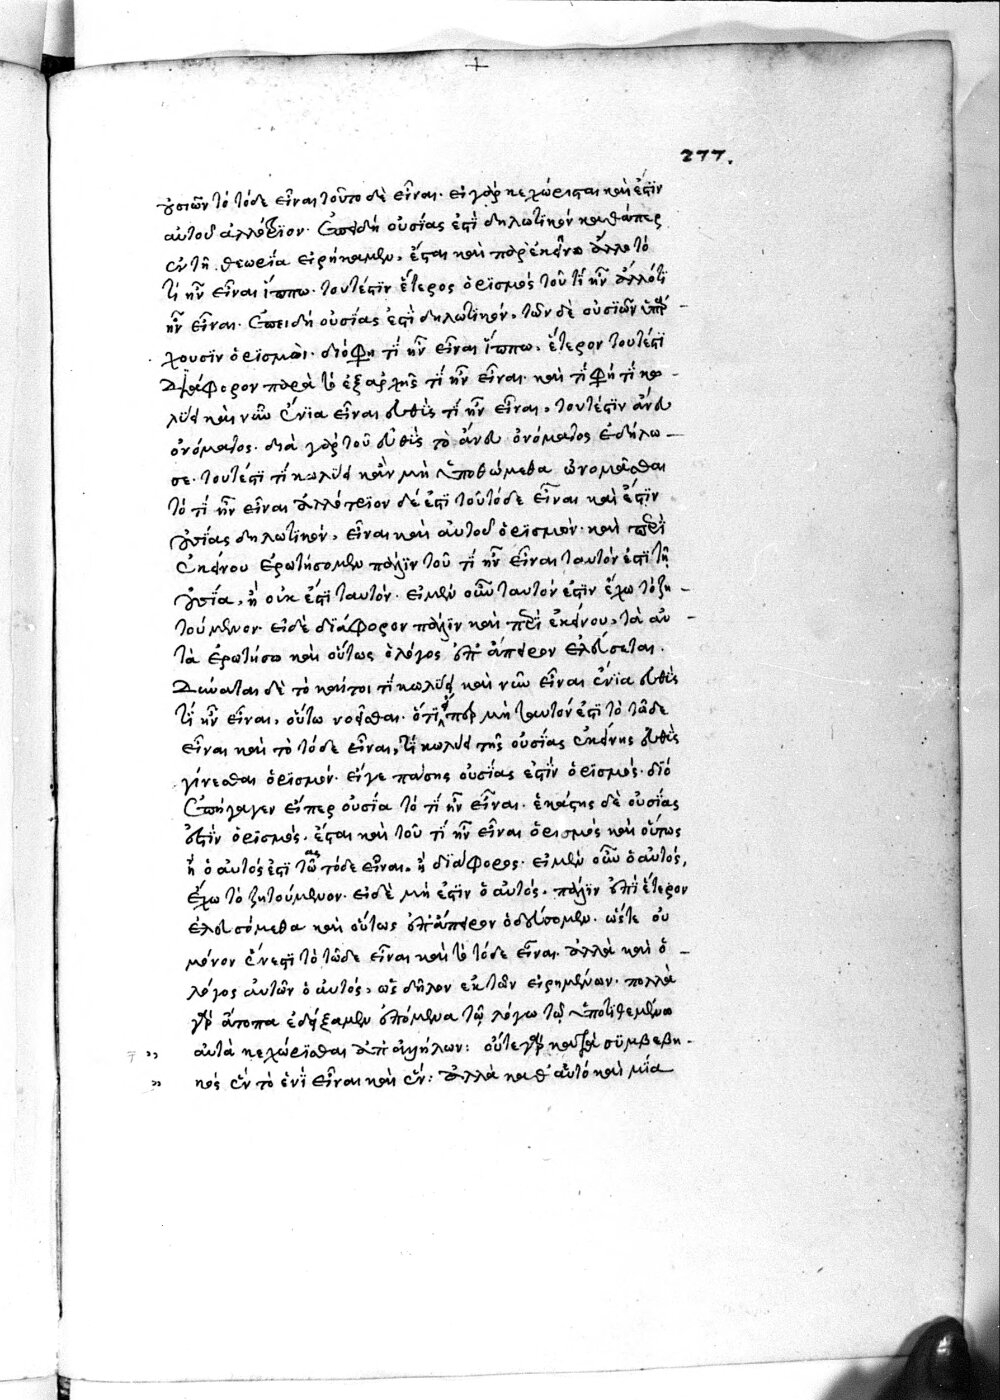 277.
οὐσιῶν τὸ τόδε εἶναι τοῦτο δὲ εἶναι. εἰ γὰρ κεχώρισται καὶ ἔστιν
αὐτοῦ ἀλλότριον. ἐπειδὴ οὐσίας ἐστὶ δηλωτικὸν καθάπερ
ἐν τῇ θεωρίᾳ εἰρήκαμεν, ἔσται καὶ παρ' ἐκεῖνο ἄλλο τὸ
τί ἦν εἶναι ἵππω. τουτέστιν ἕτερος ὁρισμὸς τοῦ τί ἦν ἄλλό τι
ἦν εἶναι. ἐπειδὴ οὐσίας ἐστὶ δηλωτικὸν, τῶν δὲ οὐσιῶν ὑπάρ-
χουσιν ὁρισμοὶ. διό φη τί ἦν εἶναι ἵππω. ἕτερον τουτέστι
διάφορον παρὰ τὸ ἐξαρχῆς τί ἦν εἶναι. καὶ τί φη τί κω-
λύει καὶ νῦν ἔνια εἶναι εὐθὺς τί ἦν εἶναι, τουτέστιν ἄνευ
ὀνόματος. διὰ γὰρ τοῦ εὐθὺς τὸ ἄνευ ὀνόματος ἐδήλω-
σε. τουτέστι τί κωλύει κἂν μὴ ὑποθώμεθα ὠνομάσθαι
τὸ τί ἦν εἶναι ἀλλότριον δέ ἐστι τοῦ τόδε εἶναι καὶ ἔστιν
οὐσίας δηλωτικὸν, εἶναι καὶ αὐτοῦ ὁρισμὸν. καὶ περὶ
ἐκείνου ἐρωτήσομεν πάλιν τοῦ τί ἦν εἶναι ταυτόν ἐστι τῇ
οὐσίᾳ, ἢ οὐκ ἔστι ταυτόν. εἰ μὲν οὖν ταυτόν ἐστιν ἔχω τὸ ζη-
τούμενον. εἰ δὲ διάφορον πάλιν καὶ περὶ ἐκείνου, τὰ αὐ-
τὰ ἐρωτήσω καὶ οὕτως ὁ λόγος ἐπ' ἄπειρον ἐλεύσεται.
Δύναται δὲ τὸ καίτοι τί κωλύει καὶ νῦν εἶναι ἔνια εὐθὺς
τί ἦν εἶναι, οὕτω νοεῖσθαι. ὅτι εἴπερ μὴ ταυτόν ἐστι τὸ τῶδε
εἶναι καὶ τὸ τόδε εἶναι, τί κωλύει τῆς οὐσίας ἐκείνης εὐθὺς
γίνεσθαι ὁρισμὸν. εἴγε πάσης οὐσίας ἐστὶν ὁρισμὸς. διό
ἐπήγαγεν εἴπερ οὐσία τὸ τί ἦν εἶναι. ἑκάστης δὲ οὐσίας
ἐστὶν ὁρισμὸς. ἔσται καὶ τοῦ τί ἦν εἶναι ὁρισμὸς καὶ οὗτος
ἢ ὁ αὐτός ἐστι τῶ τόδε εἶναι, ἢ διάφορος. εἰ μὲν οὖν ὁ αὐτός,
ἔχω τὸ ζητούμενον. εἰ δὲ μή ἐστιν ὁ αὐτός, πάλιν ἐπὶ ἕτερον
ἐλευσόμεθα καὶ οὕτως ἐπ' ἄπειρον ὁδεύσομεν. ὥστε οὐ
μόνον ἕν ἐστι τὸ τῶδε εἶναι καὶ τὸ τόδε εἶναι. ἀλλὰ καὶ ὁ
λόγος αὐτῶν ὁ αὐτός, ὡς δῆλον ἐκ τῶν εἰρημένων. πολλὰ
γὰρ ἄτοπα ἐδείξαμεν ἑπόμενα τῷ λόγω τῷ ὑποτιθεμένω
αὐτὰ κεχωρίσθαι ἀπ' ἀλλήλων: οὔτε γὰρ κατὰ συμβεβη-
κὸς ἓν τὸ ἑνὶ εἶναι καὶ ἕν: ἀλλὰ καθ' αὑτὸ καὶ μία